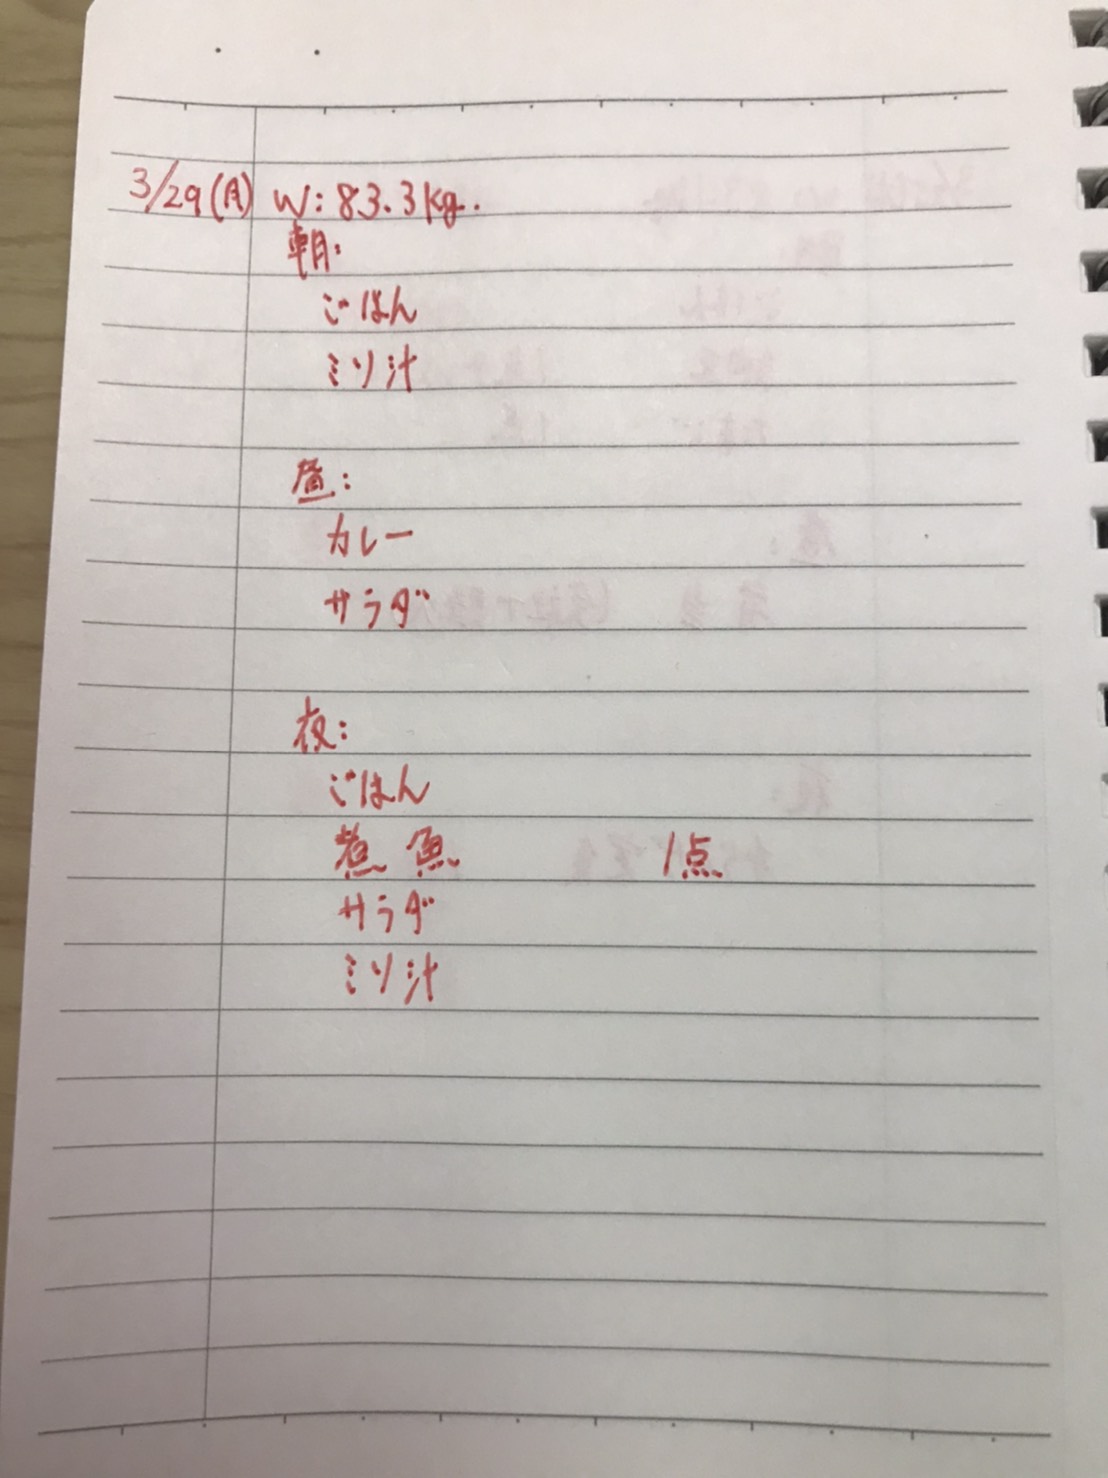 3/29(月) W: 83.3kg.
朝:
ごはん
ミソ汁
昼:
カレー
サラダ
夜:
ごはん
煮魚 1点
サラダ
ミソ汁